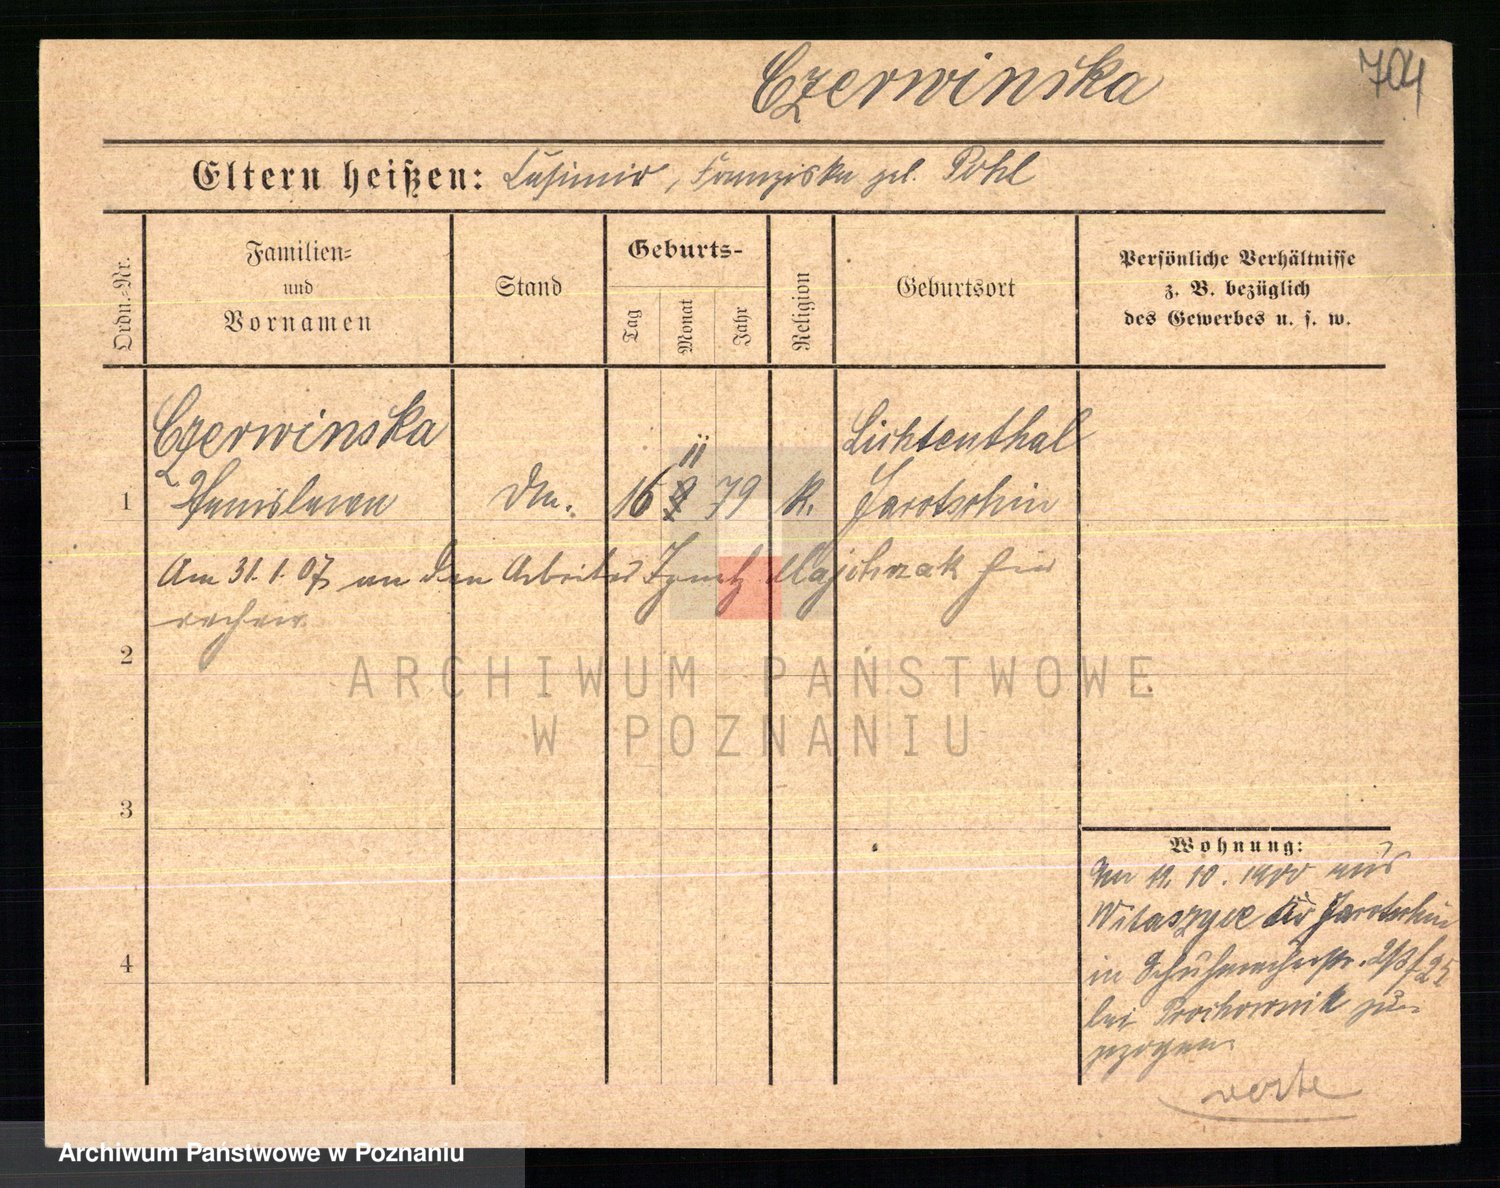 Czerwinska
704
Eltern heißen: Casimir, Franziska geb. Pohl
Ordn.-Nr.
Familien-
und
Vornamen
Stand
Geburts-
Tag
Monat
Jahr
Religion
Geburtsort
Persönliche Verhältnisse
z. B. bezüglich
des Gewerbes u. s. w.
Czerwinska
Lichtenthal
1 Stanislawa 16 11 79 K. Jarotschin
Am 31.1.07 an den Arbeiter Ignatz Majchrzak hier
2
3
4
Wohnung:
Am 19. 10. 1900 aus
Witaszyce Jarotschin
in Schuhmacherstr.
bei Prochownik zu-
gezogen.
verte
ARCHIWUM PAŃSTWOWE
W POZNANIU
Archiwum Państwowe w Poznaniu